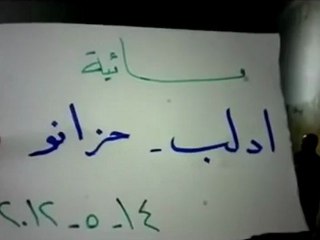 مسائية
ادلب - حزانو
١٤ - ٥ - ٢٠١٢